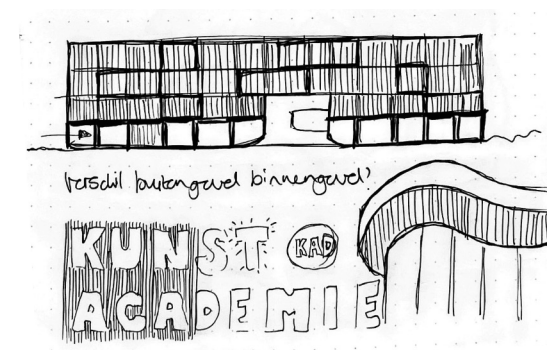 verschil buitengevel binnengevel?
KUNST KAD
ACADEMIE